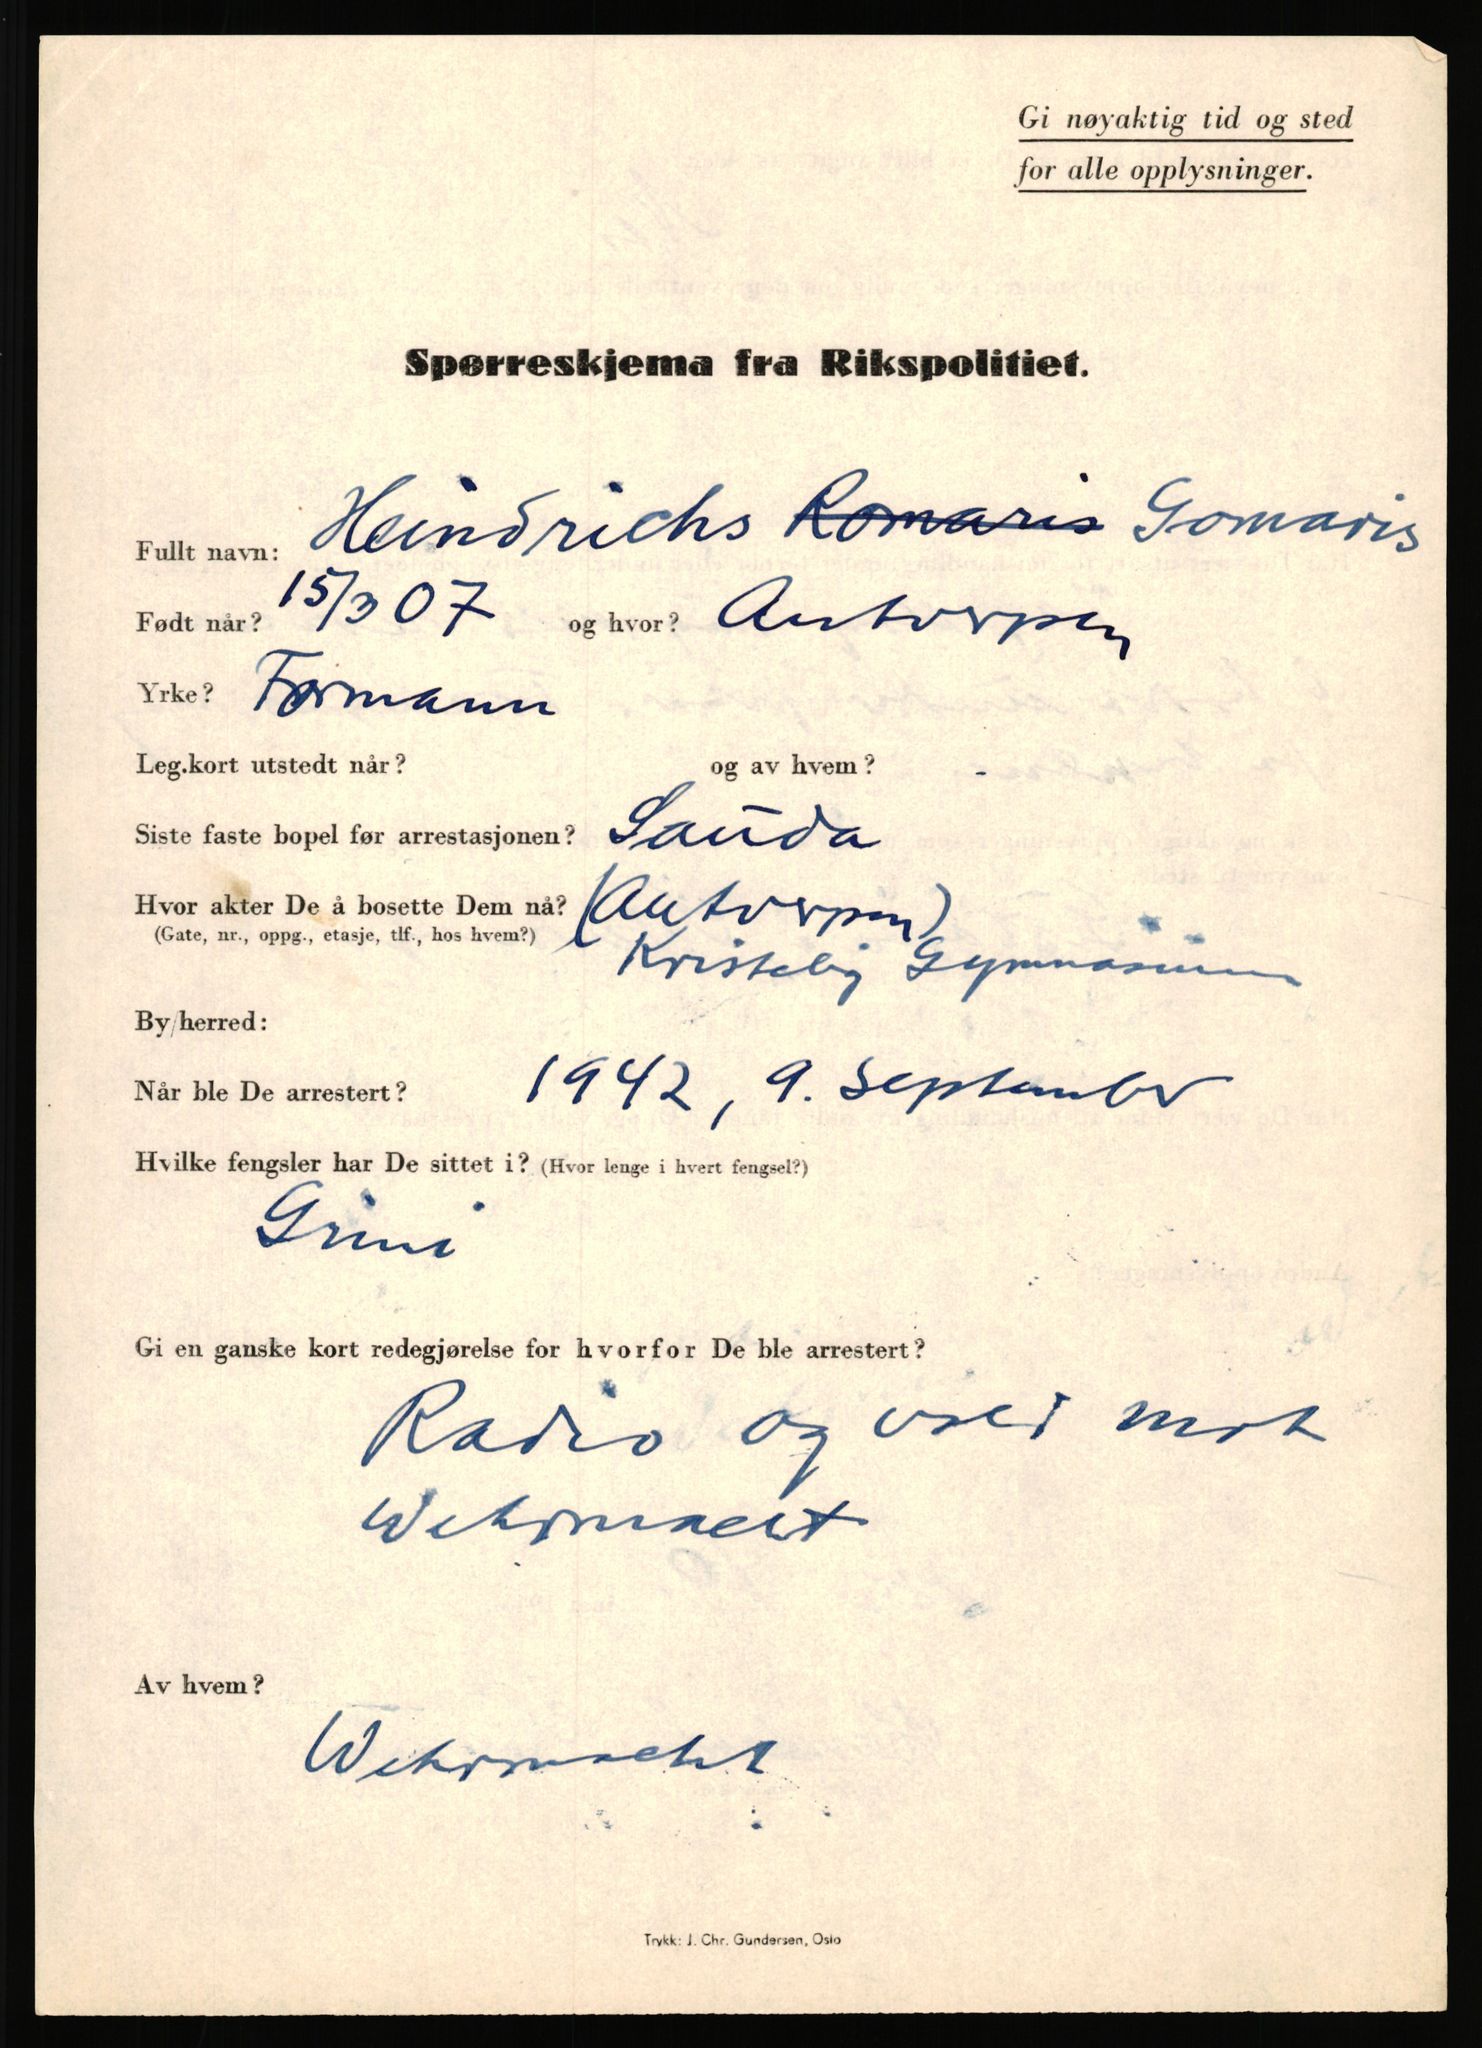 Gi nøyaktig tid og sted
for alle opplysninger.
Spørreskjema fra Rikspolitiet.
Fullt navn: Heindrichs Romaris Gomaris
Født når? 15/3 07 og hvor? Antverpen
Yrke? Formann
Leg.kort utstedt når? og av hvem? -
Siste faste bopel før arrestasjonen? Sauda
Hvor akter De å bosette Dem nå? (Antverpen)
(Gate, nr., oppg., etasje, tlf., hos hvem?) Kristelig Gymnasium
By/herred:
Når ble De arrestert? 1942, 9. September
Hvilke fengsler har De sittet i? (Hvor lenge i hvert fengsel?)
Grini
Gi en ganske kort redegjørelse for hvorfor De ble arrestert?
Radio og mot
Wehrmacht
Av hvem?
Wehrmacht
Trykk: J. Chr. Gundersen, Oslo